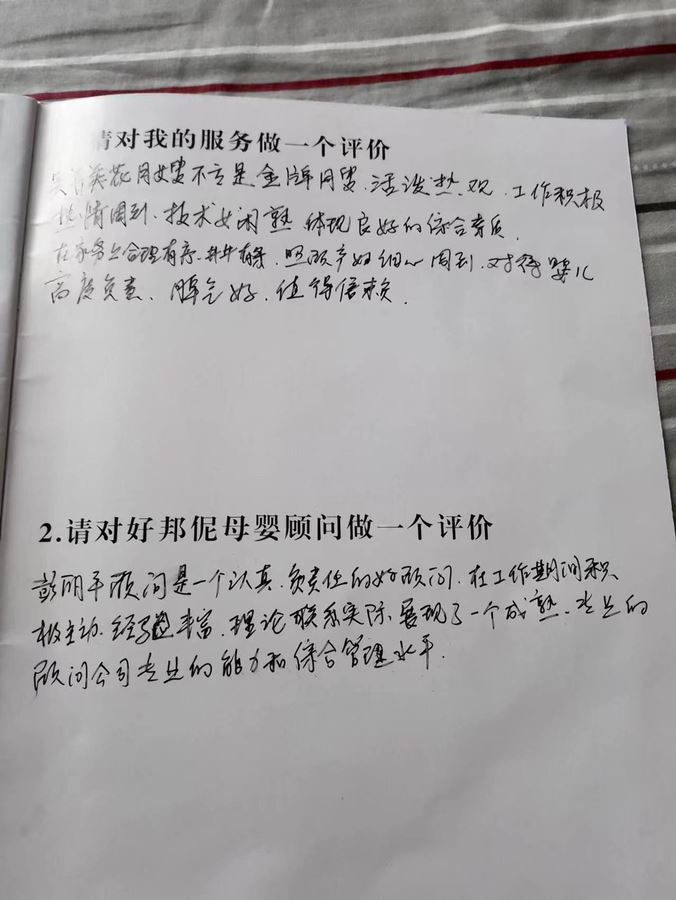 请对我的服务做一个评价
英花月嫂不亏是金牌月嫂、活泼热、工作积极
热情周到、技术娴熟 体现良好的综合素质.
在家务上合理有序、井井有条、照顾产妇细心周到、对待婴儿
高度负责、脾气好、值得信赖.
2.请对好邦伲母婴顾问做一个评价
彭丽平顾问是一个认真、负责任的好顾问、在工作期间积
极主动、经验丰富、理论联系实际、展现了一个成熟、专业的
顾问公司专业的能力和综合管理水平.